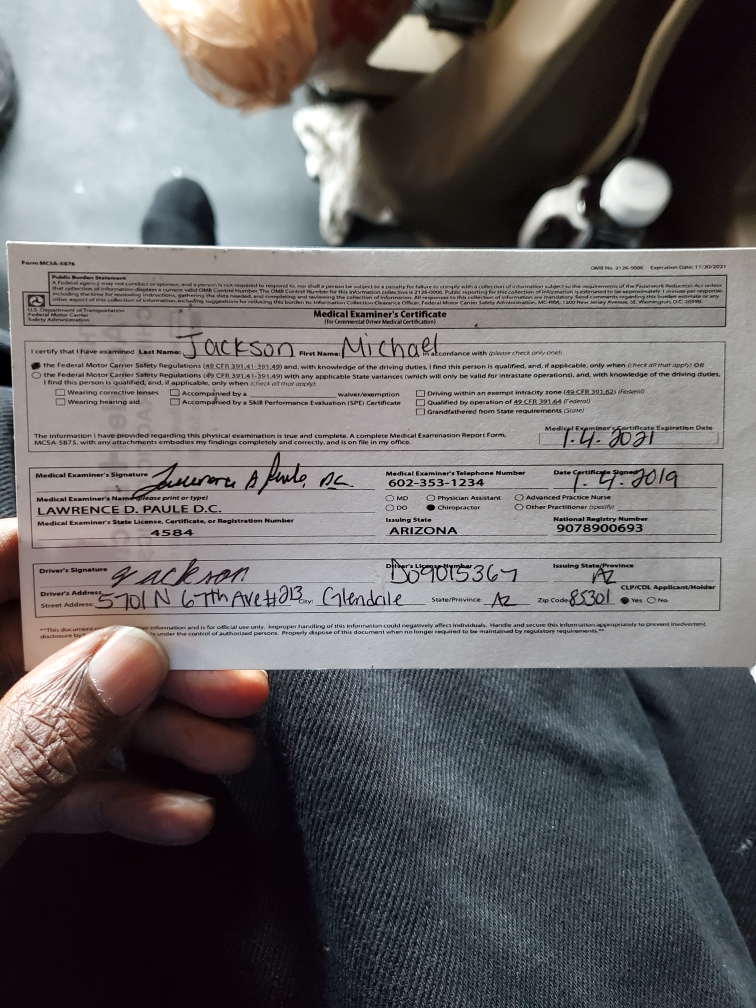 Form MCSA-5876
OMB No. 2126-0006 Expiration Date: 11/30/2021
Public Burden Statement
A Federal agency may not conduct or sponsor, and a person is not required to respond to, nor shall a person be subject to a penalty for failure to comply with a collection of information subject to the requirements of the Paperwork Reduction Act unless
that collection of information displays a current valid OMB Control Number. The OMB Control Number for this information collection is 2126-0006. Public reporting for this collection of information is estimated to be approximately 1 minute per response,
including the time for reviewing instructions, gathering the data needed, and completing and reviewing the collection of information. All responses to this collection of information are mandatory. Send comments regarding this burden estimate or any
other aspect of this collection of information, including suggestions for reducing this burden to: Information Collection Clearance Officer, Federal Motor Carrier Safety Administration, MC-RRA, 1200 New Jersey Avenue, SE, Washington, D.C. 20590.
U.S. Department of Transportation
Federal Motor Carrier
Safety Administration
Medical Examiner's Certificate
(for Commercial Driver Medical Certification)
I certify that I have examined Last Name: Jackson First Name: Michael in accordance with (please check only one):
the Federal Motor Carrier Safety Regulations (49 CFR 391.41-391.49) and, with knowledge of the driving duties, I find this person is qualified, and, if applicable, only when (check all that apply) OR
the Federal Motor Carrier Safety Regulations (49 CFR 391.41-391.49) with any applicable State variances (which will only be valid for intrastate operations), and, with knowledge of the driving duties,
I find this person is qualified, and, if applicable, only when (check all that apply):
Wearing corrective lenses Accompanied by a waiver/exemption Driving within an exempt intracity zone (49 CFR 391.62) (Federal)
Wearing hearing aid Accompanied by a Skill Performance Evaluation (SPE) Certificate Qualified by operation of 49 CFR 391.64 (Federal)
Grandfathered from State requirements (State)
The information I have provided regarding this physical examination is true and complete. A complete Medical Examination Report Form,
MCSA-5875, with any attachments embodies my findings completely and correctly, and is on file in my office.
Medical Examiner's Certificate Expiration Date
1.4.2021
Medical Examiner's Signature Lawrence D Paule, D.C.
Medical Examiner's Telephone Number
602-353-1234
Date Certificate Signed
1.4.2019
Medical Examiner's Name (please print or type)
LAWRENCE D. PAULE D.C.
MD Physician Assistant Advanced Practice Nurse
DO Chiropractor Other Practitioner (specify)
Medical Examiner's State License, Certificate, or Registration Number
4584
Issuing State
ARIZONA
National Registry Number
9078900693
Driver's Signature Jackson
Driver's License Number
D09015367
Issuing State/Province
AZ
Driver's Address
Street Address: 5701 N 67th Ave #213 City: Glendale State/Province: AZ Zip Code: 85301
CLP/CDL Applicant/Holder
Yes No
**This document information and is for official use only. Improper handling of this information could negatively affect individuals. Handle and secure this information appropriately to prevent inadvertent
disclosure by under the control of authorized persons. Properly dispose of this document when no longer required to be maintained by regulatory requirements.**